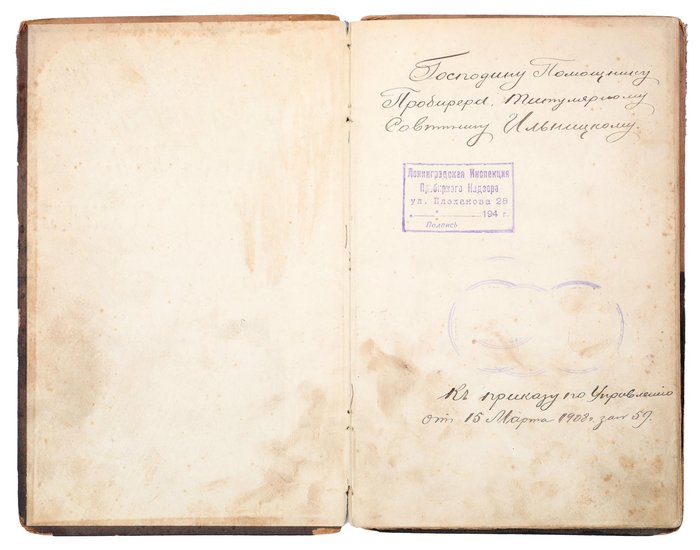 Господину Помощнику
Пробирера, титулярному
Советнику Ильницкому.
Ленинградская Инспекция
Пробирного Надзора
ул. Плеханова 28
194 г.
Подпись
Къ приказу по Управленію
от 15 Марта 1908 г. за № 59.